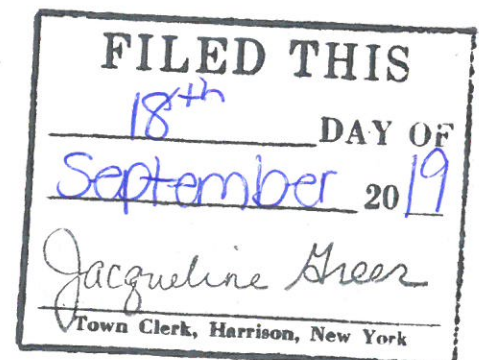 FILED THIS
18th DAY OF
September 2019
Jacqueline Greer
Town Clerk, Harrison, New York